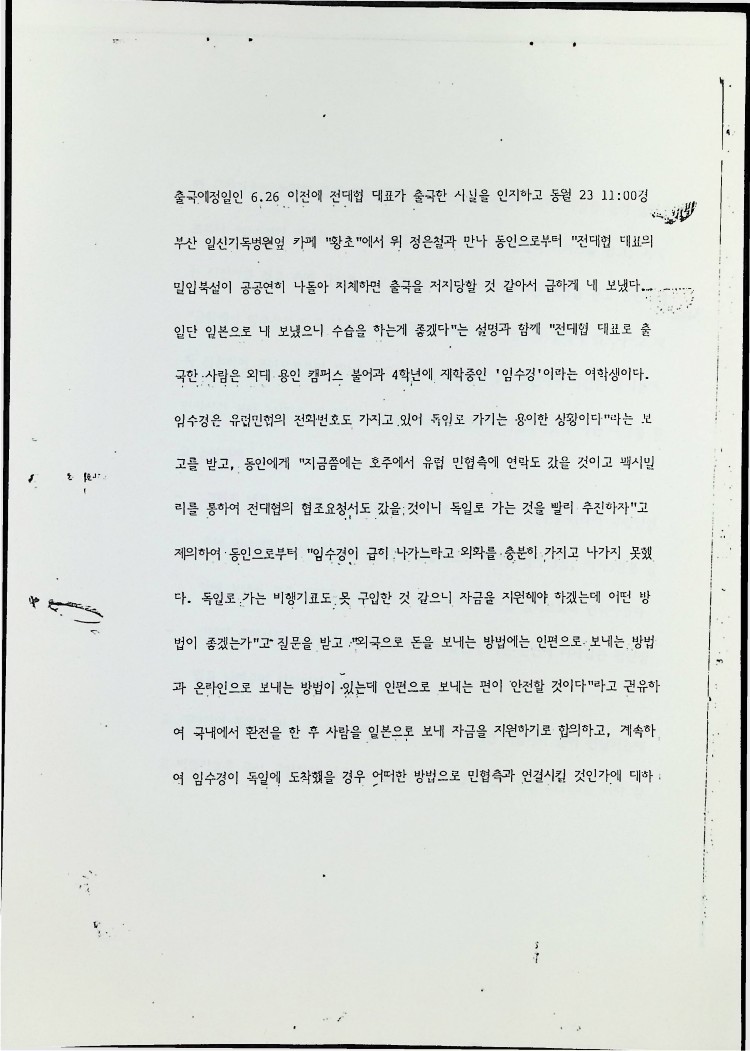 출국예정일인 6.26 이전에 전대협 대표가 출국한 사실을 인지하고 동월 23 11:00경
부산 일신기독병원옆 카페 "황초"에서 위 정은철과 만나 동인으로부터 "전대협 대표의
밀입북설이 공공연히 나돌아 지체하면 출국을 저지당할 것 같아서 급하게 내 보냈다.
일단 일본으로 내 보냈으니 수습을 하는게 좋겠다"는 설명과 함께 "전대협 대표로 출
국한 사람은 외대 용인 캠퍼스 불어과 4학년에 재학중인 '임수경'이라는 여학생이다.
임수경은 유럽민협의 전화번호도 가지고 있어 독일로 가기는 용이한 상황이다"라는 보
고를 받고, 동인에게 "지금쯤에는 호주에서 유럽 민협측에 연락도 갔을 것이고 팩시밀
리를 통하여 전대협의 협조요청서도 갔을 것이니 독일로 가는 것을 빨리 추진하자"고
제의하여 동인으로부터 "임수경이 급히 나가느라고 외화를 충분히 가지고 나가지 못했
다. 독일로 가는 비행기표도 못 구입한 것 같으니 자금을 지원해야 하겠는데 어떤 방
법이 좋겠는가"고 질문을 받고 "외국으로 돈을 보내는 방법에는 인편으로 보내는 방법
과 온라인으로 보내는 방법이 있는데 인편으로 보내는 편이 안전할 것이다"라고 권유하
여 국내에서 환전을 한 후 사람을 일본으로 보내 자금을 지원하기로 합의하고, 계속하
여 임수경이 독일에 도착했을 경우 어떠한 방법으로 민협측과 연결시킬 것인가에 대하